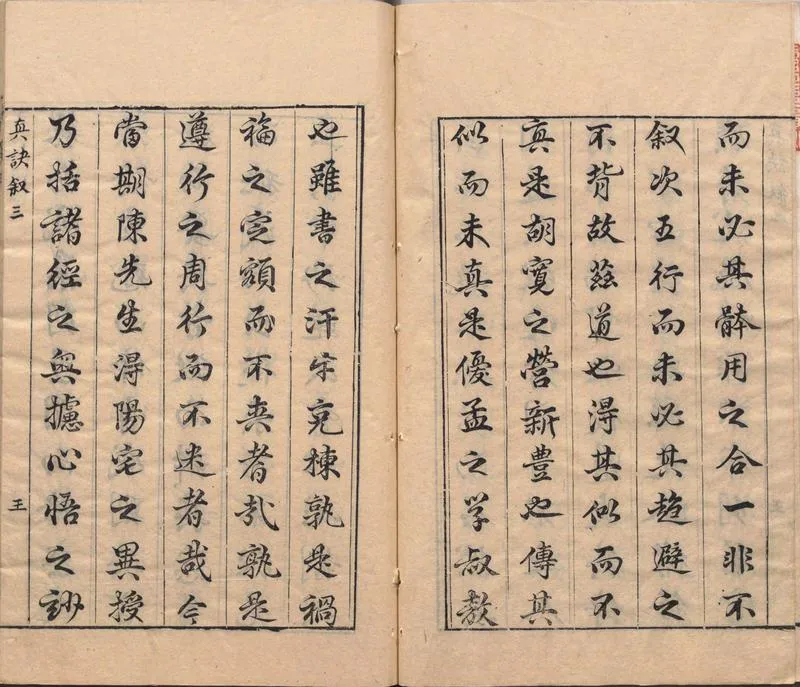 而未必其骵用之合一非不
叙次五行而未必其趋避之
不背故茲道也得其似而不
真是胡寬之營新豊也傳其
似而未真是優孟之学叔敖
也雖書之汗牛充棟孰是禍
福之定額而不爽者孰是
遵行之周行而不迷者哉今
當期陳先生得陽宅之異授
乃括諸經之奧攄心悟之玅
真訣叙三
王